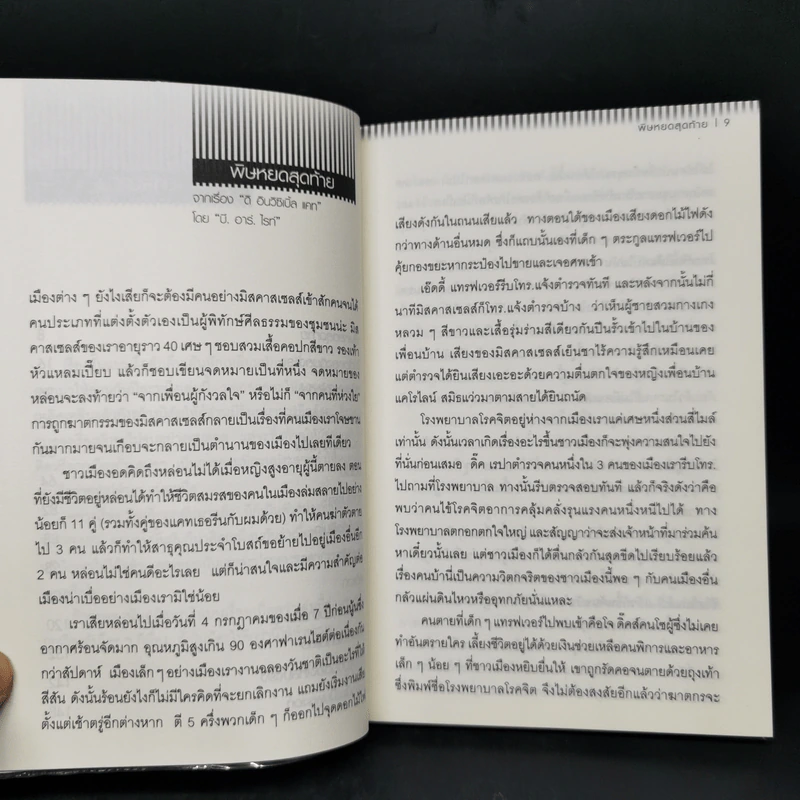 พิษหยดสุดท้าย
จากเรื่อง "ดิ อินวิซิเบิ้ล แคท"
โดย "บี. อาร์. ไรท์"
เมืองต่าง ๆ ยังไงเสียก็จะต้องมีคนอย่างมิสคาสเซลส์เข้าสักคนจนได้
คนประเภทที่แต่งตั้งตัวเองเป็นผู้พิทักษ์ศีลธรรมของชุมชนน่ะ มิส
คาสเซลส์ของเราอายุราว 40 เศษ ๆ ชอบสวมเสื้อคอปกสีขาว รองเท้า
หัวแหลมเปี๊ยบ แล้วก็ชอบเขียนจดหมายเป็นที่หนึ่ง จดหมายของ
หล่อนจะลงท้ายว่า "จากเพื่อนผู้กังวลใจ" หรือไม่ก็ "จากคนที่ห่วงใย"
การถูกฆาตกรรมของมิสคาสเซลส์กลายเป็นเรื่องที่คนเมืองเราโจษขาน
กันมากมายจนเกือบจะกลายเป็นตำนานของเมืองไปเลยทีเดียว
ชาวเมืองอดคิดถึงหล่อนไม่ได้เมื่อหญิงสูงอายุผู้นี้ตายลง ตอน
ที่ยังมีชีวิตอยู่หล่อนได้ทำให้ชีวิตสมรสของคนในเมืองล่มสลายไปอย่าง
น้อยก็ 11 คู่ (รวมทั้งคู่ของแคทเธอรีนกับผมด้วย) ทำให้คนฆ่าตัวตาย
ไป 3 คน แล้วก็ทำให้สาธุคุณประจำโบสถ์ขอย้ายไปอยู่เมืองอื่นอีก
2 คน หล่อนไม่ใช่คนดีอะไรเลย แต่ก็น่าสนใจและมีความสำคัญต่อ
เมืองน่าเบื่ออย่างเมืองเรามิใช่น้อย
เราเสียหล่อนไปเมื่อวันที่ 4 กรกฎาคมของเมื่อ 7 ปีก่อนนู้นซึ่ง
อากาศร้อนจัดมาก อุณหภูมิสูงเกิน 90 องศาฟาเรนไฮต์ต่อเนื่องกัน
กว่าสัปดาห์ เมืองเล็กๆ อย่างเมืองเรางานฉลองวันชาติเป็นอะไรที่ได้
สีสัน ดังนั้นร้อนยังไงก็ไม่มีใครคิดที่จะยกเลิกงาน แถมยังเริ่มงานเสีย
ตั้งแต่เช้าตรู่อีกต่างหาก ตี 5 ครึ่งพวกเด็ก ๆ ก็ออกไปจุดดอกไม้ไฟ
พิษหยดสุดท้าย | 9
เสียงดังกันในถนนเสียแล้ว ทางตอนใต้ของเมืองเสียงดอกไม้ไฟดัง
กว่าทางด้านอื่นหมด ซึ่งก็แถบนั้นเองที่เด็ก ๆ ตระกูลแทรฟเวอร์ไป
คุ้ยกองขยะหากระป๋องไปขายและเจอศพเข้า
เอ๊ดดี้ แทรฟเวอร์รีบโทร.แจ้งตำรวจทันที และหลังจากนั้นไม่กี่
นาทีมิสคาสเซลส์ก็โทร.แจ้งตำรวจบ้าง ว่าเห็นผู้ชายสวมกางเกง
หลวม ๆ สีขาวและเสื้อรุ่มร่ามสีเดียวกันปีนรั้วเข้าไปในบ้านของ
เพื่อนบ้าน เสียงของมิสคาสเซลส์เย็นชาไร้ความรู้สึกเหมือนเคย
แต่ตำรวจได้ยินเสียงเอะอะด้วยความตื่นตกใจของหญิงเพื่อนบ้าน
แคโรไลน์ สมิธแว่วมาตามสายได้ยินถนัด
โรงพยาบาลโรคจิตอยู่ห่างจากเมืองเราแค่เศษหนึ่งส่วนสี่ไมล์
เท่านั้น ดังนั้นเวลาเกิดเรื่องอะไรขึ้นชาวเมืองก็จะพุ่งความสนใจไปยัง
ที่นั่นก่อนเสมอ ดิ๊ค เรปาตำรวจคนหนึ่งใน 3 คนของเมืองเรารีบโทร.
ไปถามที่โรงพยาบาล ทางนั้นรีบตรวจสอบทันที แล้วก็จริงดังว่าคือ
พบว่าคนไข้โรคจิตอาการคลุ้มคลั่งรุนแรงคนหนึ่งหนีไปได้ ทาง
โรงพยาบาลตกอกตกใจใหญ่ และสัญญาว่าจะส่งเจ้าหน้าที่มาร่วมค้น
หาเดี๋ยวนั้นเลย แต่ชาวเมืองก็ได้ตื่นกลัวกันสุดขีดไปเรียบร้อยแล้ว
เรื่องคนบ้านี่เป็นความวิตกจริตของชาวเมืองนี้พอ ๆ กับคนเมืองอื่น
กลัวแผ่นดินไหวหรืออุทกภัยนั่นแหละ
คนตายที่เด็ก ๆ แทรฟเวอร์ไปพบเข้าคือโจ ดิ๊คส์คนโซผู้ซึ่งไม่เคย
ทำอันตรายใคร เลี้ยงชีวิตอยู่ได้ด้วยเงินช่วยเหลือคนพิการและอาหาร
เล็ก ๆ น้อย ๆ ที่ชาวเมืองหยิบยื่นให้ เขาถูกรัดคอจนตายด้วยถุงเท้า
ซึ่งพิมพ์ชื่อโรงพยาบาลโรคจิต จึงไม่ต้องสงสัยอีกแล้วว่าฆาตกรจะ